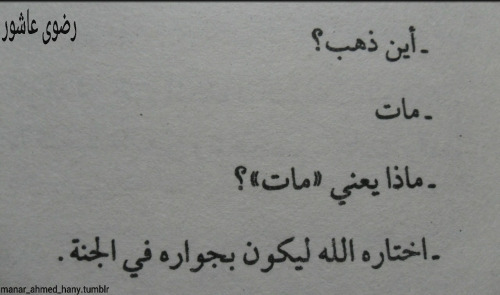 رضوى عاشور
ـ أين ذهب؟
ـ مات
ـ ماذا يعني «مات»؟
ـ اختاره الله ليكون بجواره في الجنة .
manar_ahmed_hany.tumblr